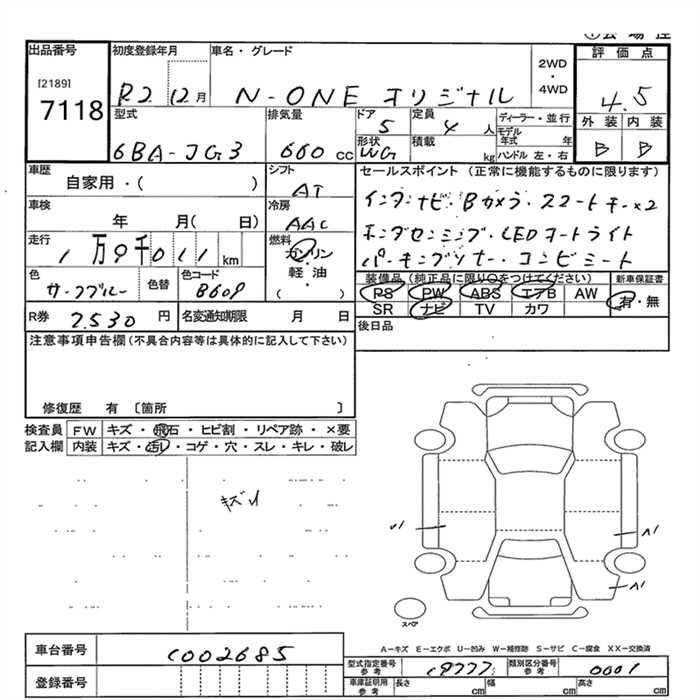 出品番号 初度登録年月 車名・グレード 2WD・4WD 評価点
[2189]
7118 R2 12月 N-ONE オリジナル 4.5
型式 排気量 ドア 定員 ディーラー・並行 外装 内装
6BA-JG3 660 cc 5 4 人 モデル年式 年 B B
形状 WG 積載 kg ハンドル 左・右
車歴 シフト セールスポイント (正常に機能するものに限ります)
自家用・( ) AT
車検 冷房 インターナビ・Bカメラ・スマートキー×2
年 月( 日) AAC ホンダセンシング・LEDオートライト
走行 1万9千011km 燃料 パーキングソナー・コンビシート
ガソリン
軽・油
( )
色 色替 色コード 装備品(純正品に限り○をつけてください) 新車保証書
サーフブルー B609 PS PW ABS エアB AW 有・無
SR ナビ TV カワ
R券 7530 円 名変通知期限 月 日 後日品
注意事項申告欄(不具合内容等は具体的に記入して下さい)
修復歴 有 〔箇所 〕
検査員 FW キズ・飛石・ヒビ割・リペア跡・×要
記入欄 内装 キズ・汚レ・コゲ・穴・スレ・キレ・破レ
キズ小
A1
A1
スペア
A-キズ E-エクボ U-凹み W-補修跡 S-サビ C-腐食 XX-交換済
車台番号 C002685
型式指定番号 参考 19777 類別区分番号 参考 0001
登録番号 車庫証明用 参考 長さ cm 幅 cm 高さ cm